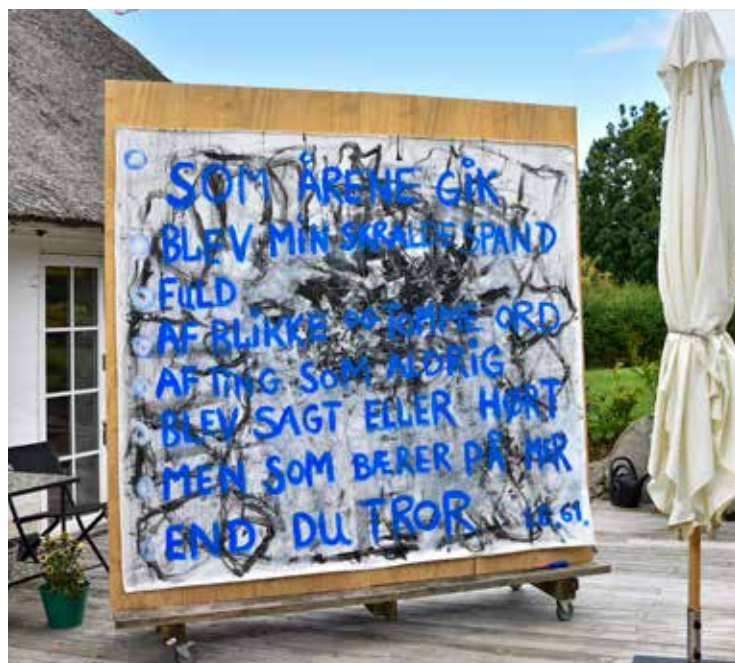 SOM ÅRENE GIK
BLEV MIN SKRALDE SPAND
FULD
AF BLIKKE OG TOMME ORD
AF TING SOM ALDRIG
BLEV SAGT ELLER HØRT
MEN SOM BÆRER PÅ MER
END DU TROR